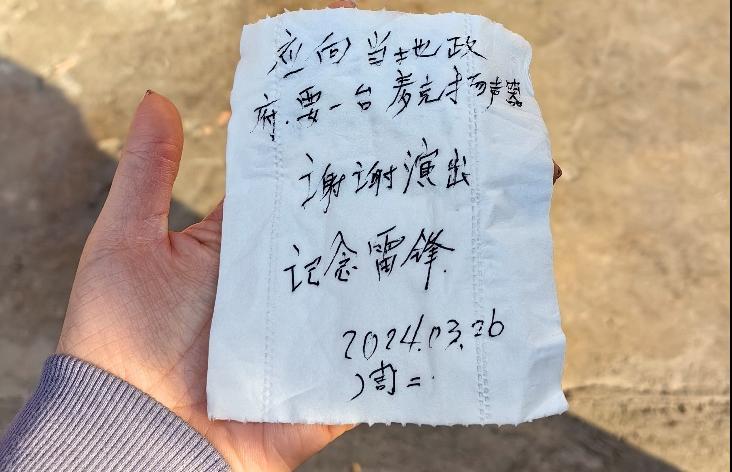 应向当地政
府.要一台麦克扬声器
谢谢演出
记念雷锋.
2024.03.26
周二.